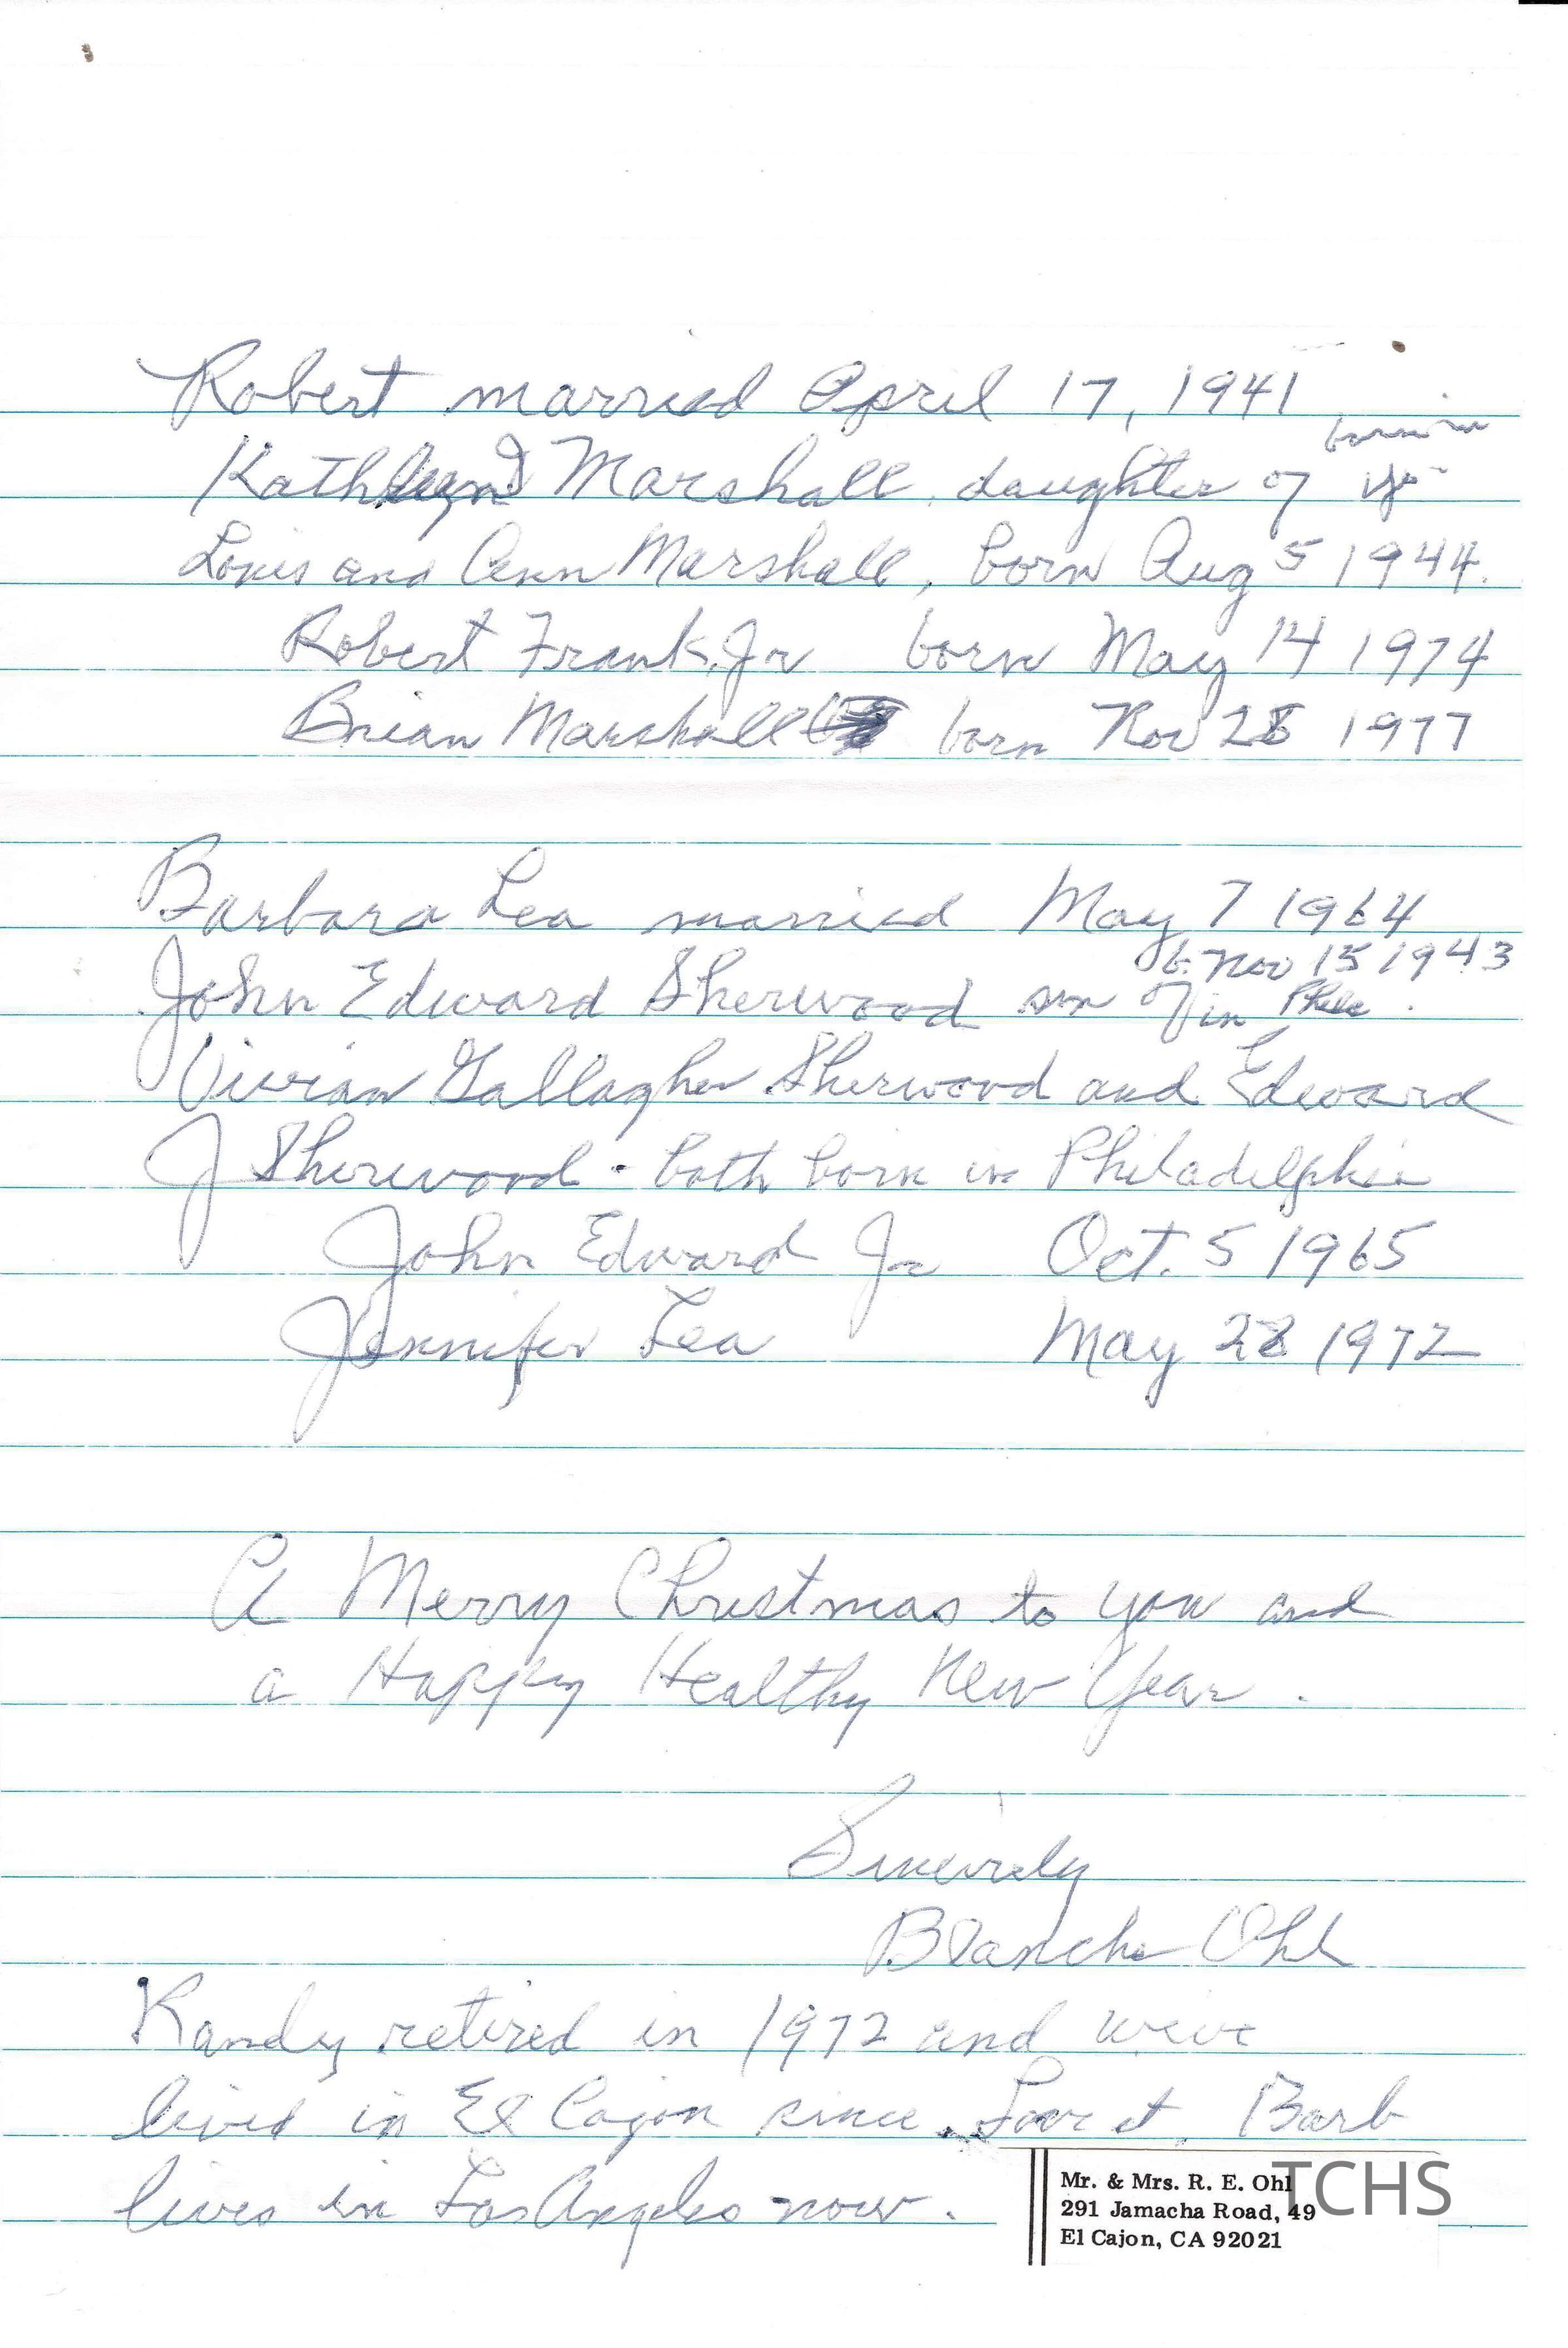 Robert married April 17, 1941
born in
Kathleen Marshall, daughter of
Louis and Ann Marshall, born Aug 5 1944.
Robert Frank Jr born May 14 1974
Brian Marshall born Nov 28 1977
Barbara Lea married May 7 1964
b. Nov 15 1943
John Edward Sherwood son of in Phila.
Vivian Gallagher Sherwood and Edward
J Sherwood - both born in Philadelphia
John Edward Jr Oct. 5 1965
Jennifer Lea May 28 1972
A Merry Christmas to you and
a Happy Healthy New Year.
Sincerely
Blanche Ohl
Randy retired in 1972 and weve
lived in El Cajon since. Love it. Barb
lives in Los Angeles now.
TCHS
Mr. & Mrs. R. E. Ohl
291 Jamacha Road, 49
El Cajon, CA 92021